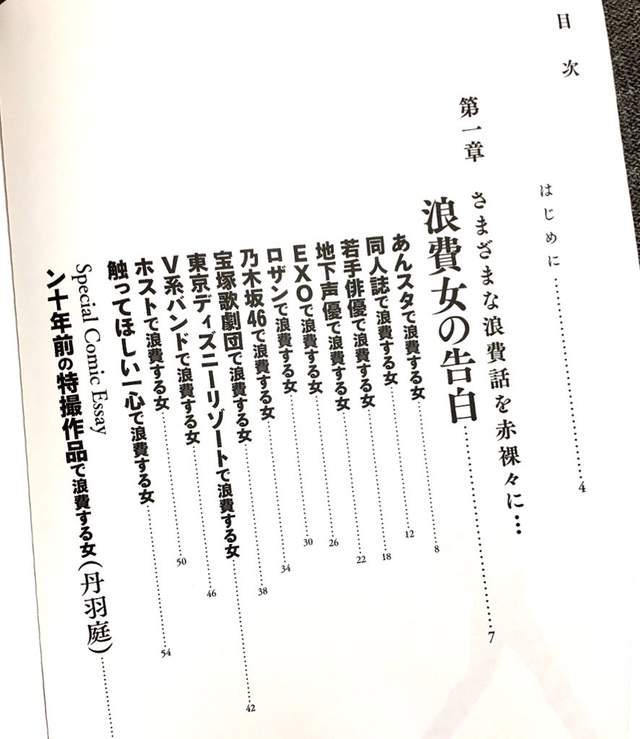 目次
はじめに……4
第一章 さまざまな浪費話を赤裸々に…
浪費女の告白……7
あんスタで浪費する女……8
同人誌で浪費する女……12
若手俳優で浪費する女……18
地下声優で浪費する女……22
EXOで浪費する女……26
ロザンで浪費する女……30
乃木坂46で浪費する女……34
宝塚歌劇団で浪費する女……38
東京ディズニーリゾートで浪費する女……42
V系バンドで浪費する女……46
ホストで浪費する女……50
触ってほしい一心で浪費する女……54
Special Comic Essay
ン十年前の特撮作品で浪費する女(丹羽庭)……